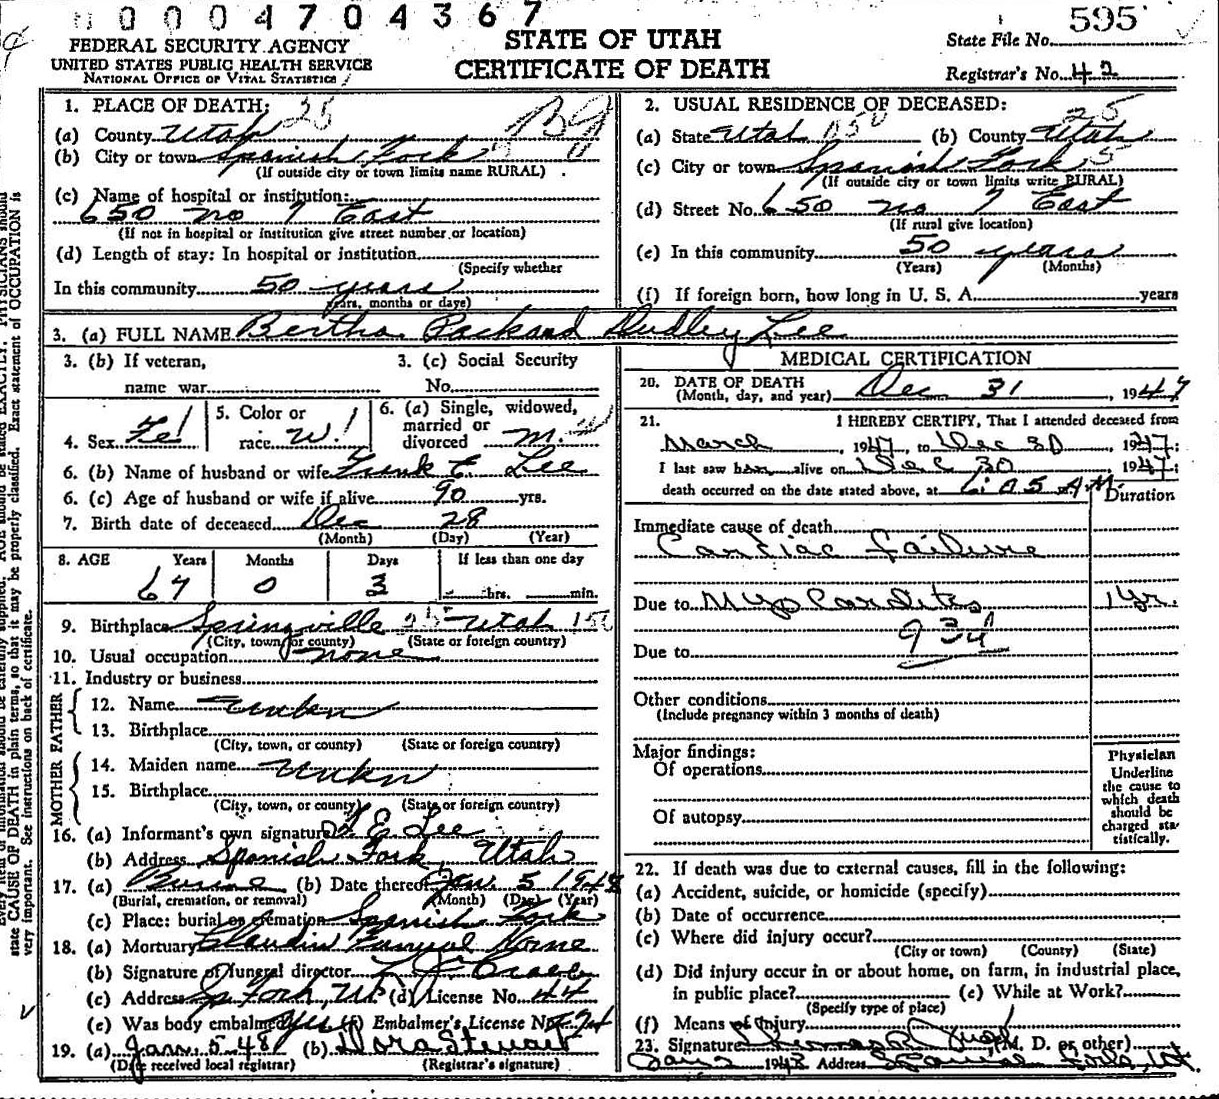 0004704367
595
FEDERAL SECURITY AGENCY
UNITED STATES PUBLIC HEALTH SERVICE
NATIONAL OFFICE OF VITAL STATISTICS
STATE OF UTAH
CERTIFICATE OF DEATH
State File No.
Registrar's No. 42
1. PLACE OF DEATH: 25
(a) County Utah
(b) City or town Spanish Fork
(If outside city or town limits name RURAL)
(c) Name of hospital or institution:
650 no 7 East
(If not in hospital or institution give street number or location)
(d) Length of stay: In hospital or institution
(Specify whether
In this community 50 years
years, months or days)
2. USUAL RESIDENCE OF DECEASED:
25
(a) State Utah (b) County Utah
(c) City or town Spanish Fork
(If outside city or town limits write RURAL)
(d) Street No. 650 no 7 East
(If rural give location)
(e) In this community 50 years
(Years) (Months)
(f) If foreign born, how long in U. S. A. years
3. (a) FULL NAME Bertha Packard Dudley Lee
3. (b) If veteran,
name war
3. (c) Social Security
No.
4. Sex Fe
5. Color or
race W
6. (a) Single, widowed,
married or
divorced M.
6. (b) Name of husband or wife E. Lee
6. (c) Age of husband or wife if alive 90 yrs.
7. Birth date of deceased Dec 28
(Month) (Day) (Year)
8. AGE Years Months Days If less than one day
67 0 3 hrs. min.
9. Birthplace Springville 25 Utah
(City, town, or county) (State or foreign country)
10. Usual occupation none
11. Industry or business
FATHER
12. Name Unkn
13. Birthplace
(City, town, or county) (State or foreign country)
MOTHER
14. Maiden name Unkn
15. Birthplace
(City, town, or county) (State or foreign country)
16. (a) Informant's own signature E Lee
(b) Address Spanish Fork, Utah
17. (a) (b) Date thereof Jan. 5 1948
(Burial, cremation, or removal) (Month) (Day) (Year)
(c) Place: burial or cremation Spanish Fork
18. (a) Mortuary Home
(b) Signature of funeral director
(c) Address Sp Fork, Ut. (d) License No. 44
(e) Was body embalmed yes (f) Embalmer's License No.
19. (a) Jan. 5-48 (b) Dora Stewart
(Date received local registrar) (Registrar's signature)
MEDICAL CERTIFICATION
20. DATE OF DEATH
(Month, day, and year) Dec 31, 1947
21. I HEREBY CERTIFY, That I attended deceased from
March, 1947, to Dec 30 1947;
I last saw her alive on Dec 30 1947;
death occurred on the date stated above, at 6:05 A M.
Duration
Immediate cause of death
Cardiac failure
Due to Myocardites 1 yr.
Due to
Other conditions
(Include pregnancy within 3 months of death)
Major findings:
Of operations
Of autopsy
Physician
Underline
the cause to
which death
should be
charged sta-
tistically.
22. If death was due to external causes, fill in the following:
(a) Accident, suicide, or homicide (specify)
(b) Date of occurrence
(c) Where did injury occur?
(City or town) (County) (State)
(d) Did injury occur in or about home, on farm, in industrial place,
in public place? (e) While at Work?
(Specify type of place)
(f) Means of Injury
23. Signature (M. D. or other)
Jan 2 Address Spanish Fork, Ut.
state CAUSE OF DEATH in plain terms, so that it may be properly classified. Exact statement of OCCUPATION is
very important. See instructions on back of certificate.